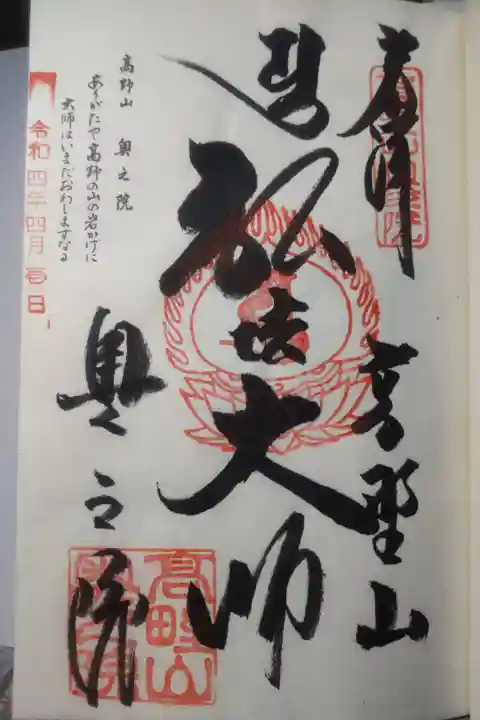 奉拝
高野山
弘法大師
高野山 奥之院
ありがたや高野の山の岩かげに
大師はいまだおわしますなる
奥之院
令和四年四月壱日
高野山